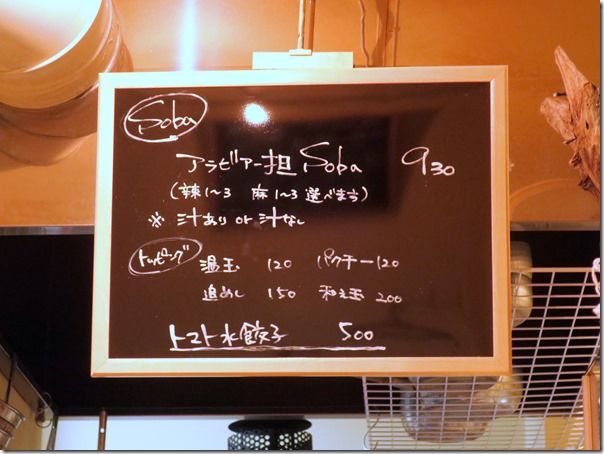 Soba
アラビアー担 Soba 930
(辣1~3 麻1~3 選べます)
※ 汁あり or 汁なし
トッピング
温玉 120 パクチー120
追めし 150 和え玉 200
トマト水餃子 500